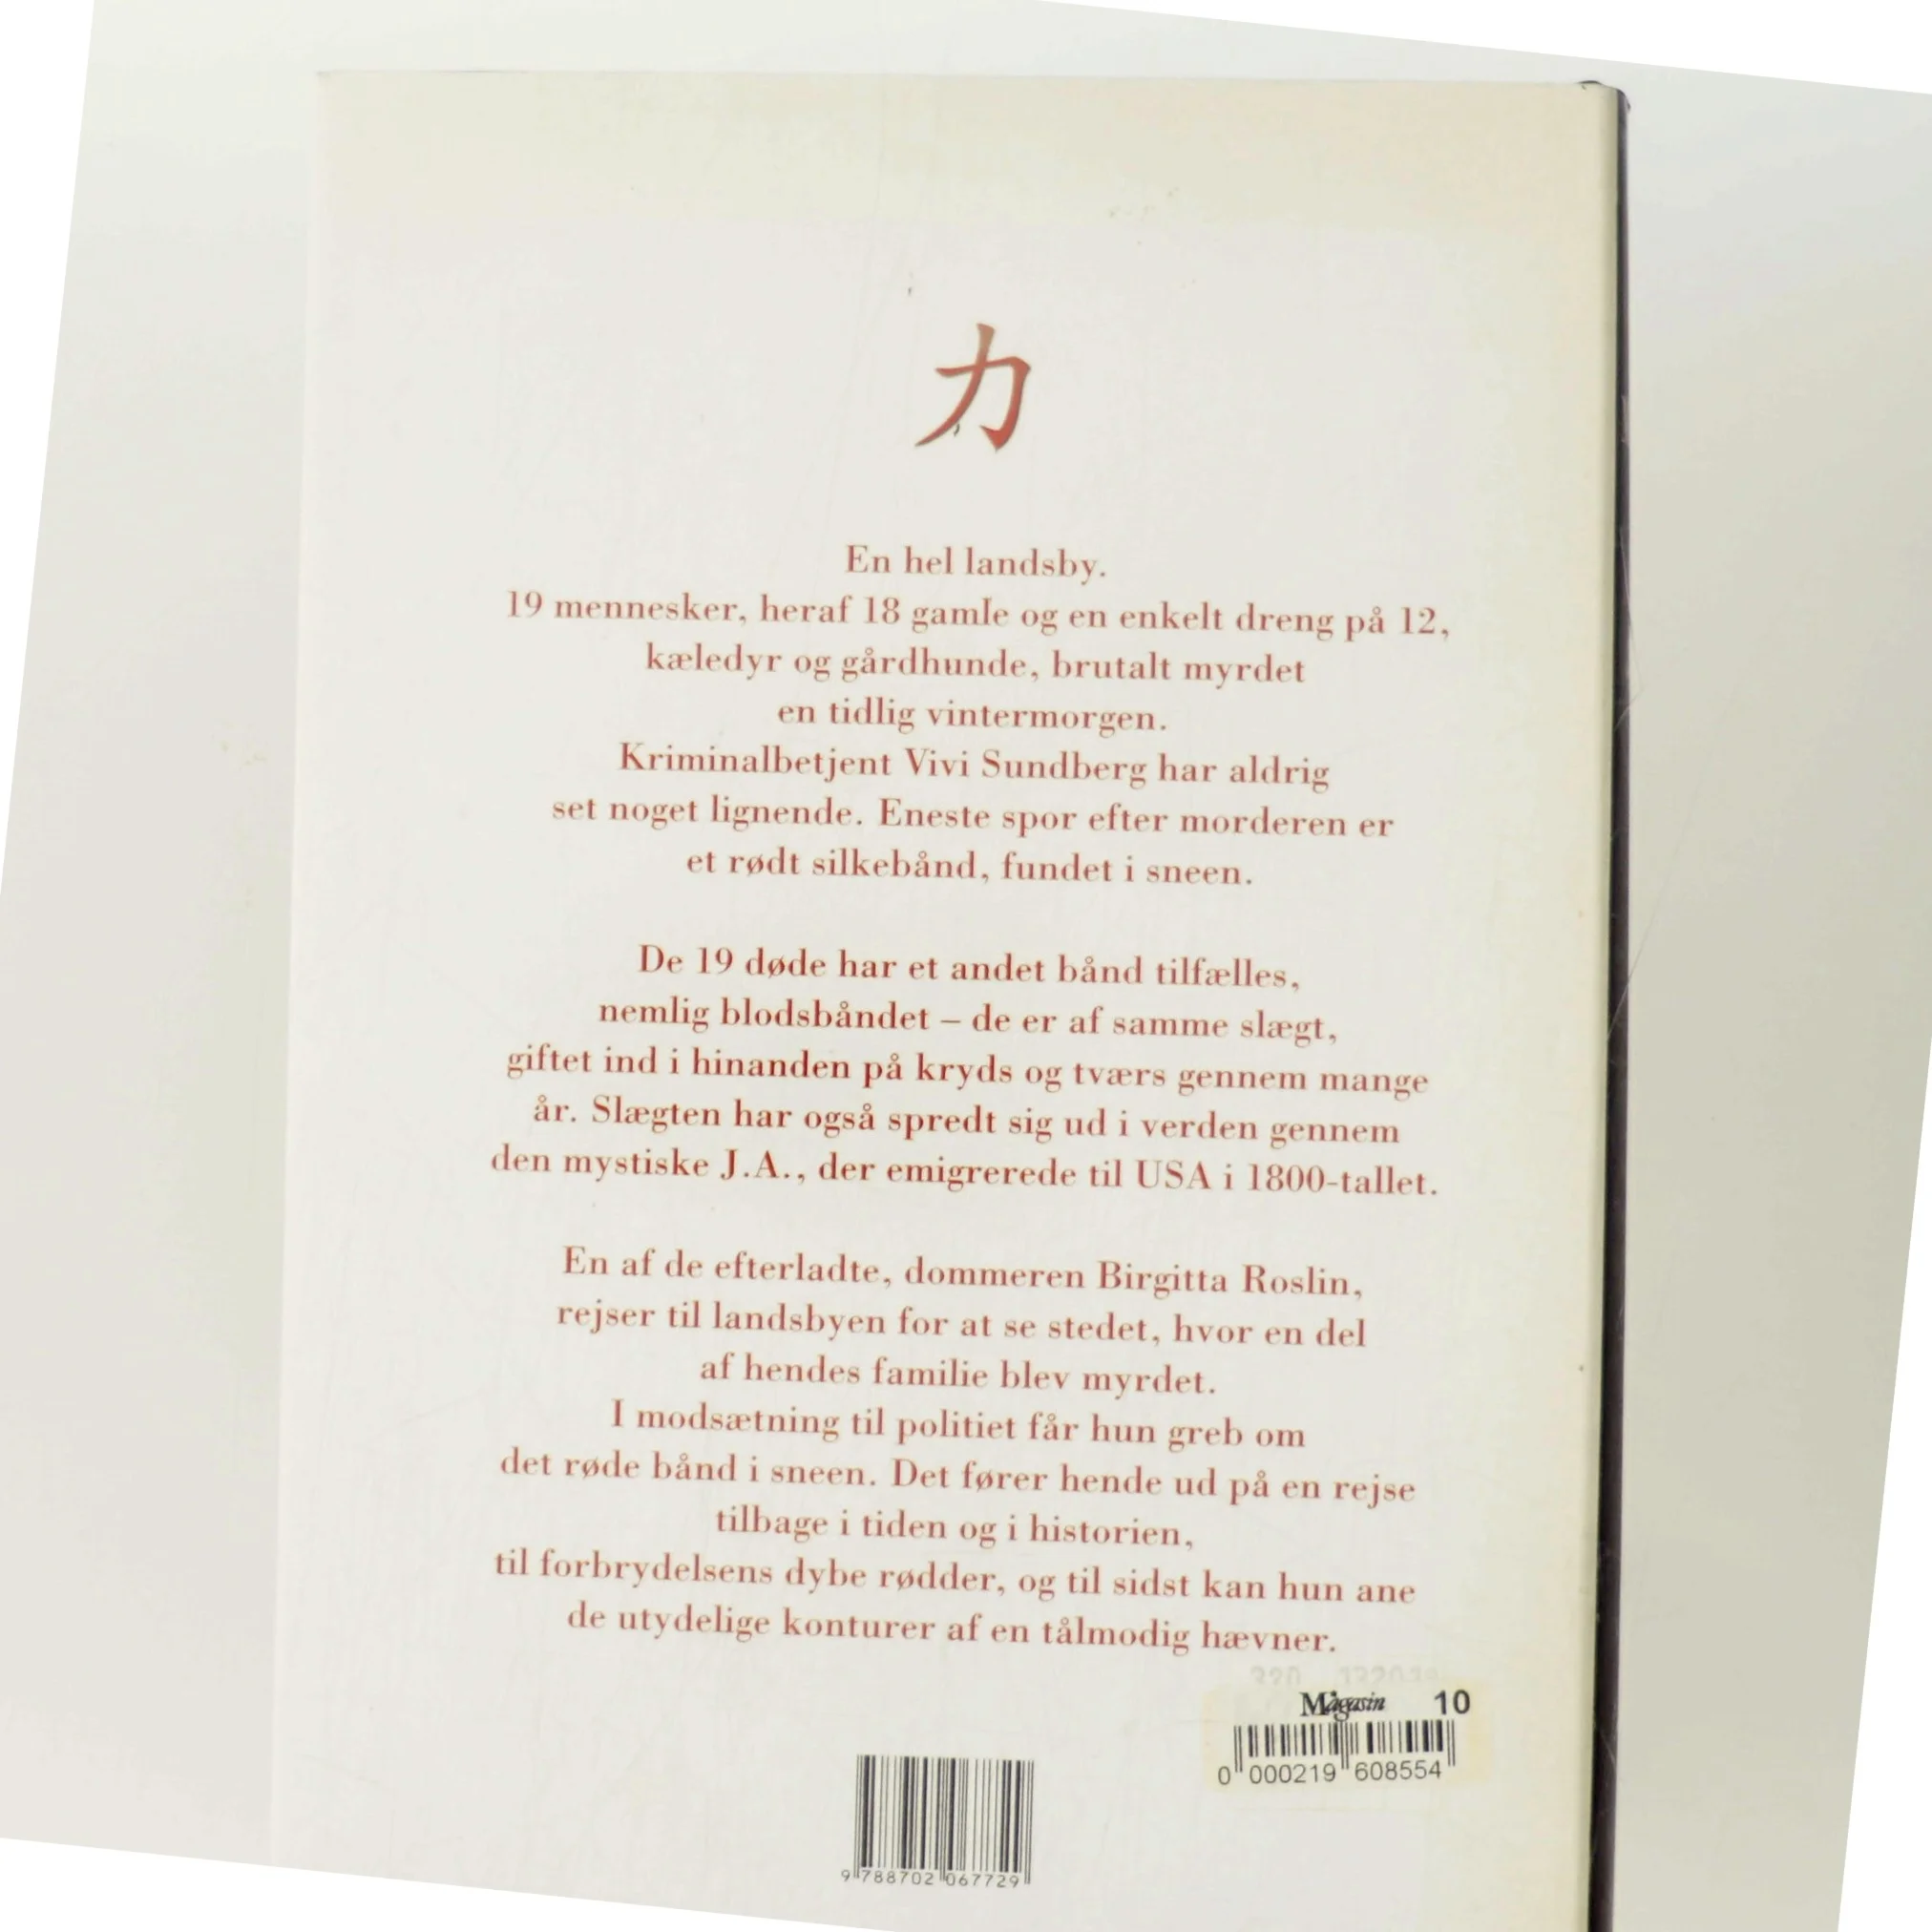 力
En hel landsby.
19 mennesker, heraf 18 gamle og en enkelt dreng på 12,
kæledyr og gårdhunde, brutalt myrdet
en tidlig vintermorgen.
Kriminalbetjent Vivi Sundberg har aldrig
set noget lignende. Eneste spor efter morderen er
et rødt silkebånd, fundet i sneen.
De 19 døde har et andet bånd tilfælles,
nemlig blodsbåndet – de er af samme slægt,
giftet ind i hinanden på kryds og tværs gennem mange
år. Slægten har også spredt sig ud i verden gennem
den mystiske J.A., der emigrerede til USA i 1800-tallet.
En af de efterladte, dommeren Birgitta Roslin,
rejser til landsbyen for at se stedet, hvor en del
af hendes familie blev myrdet.
I modsætning til politiet får hun greb om
det røde bånd i sneen. Det fører hende ud på en rejse
tilbage i tiden og i historien,
til forbrydelsens dybe rødder, og til sidst kan hun ane
de utydelige konturer af en tålmodig hævner.
Magasin 10
0 000219 608554
9 788702 067729